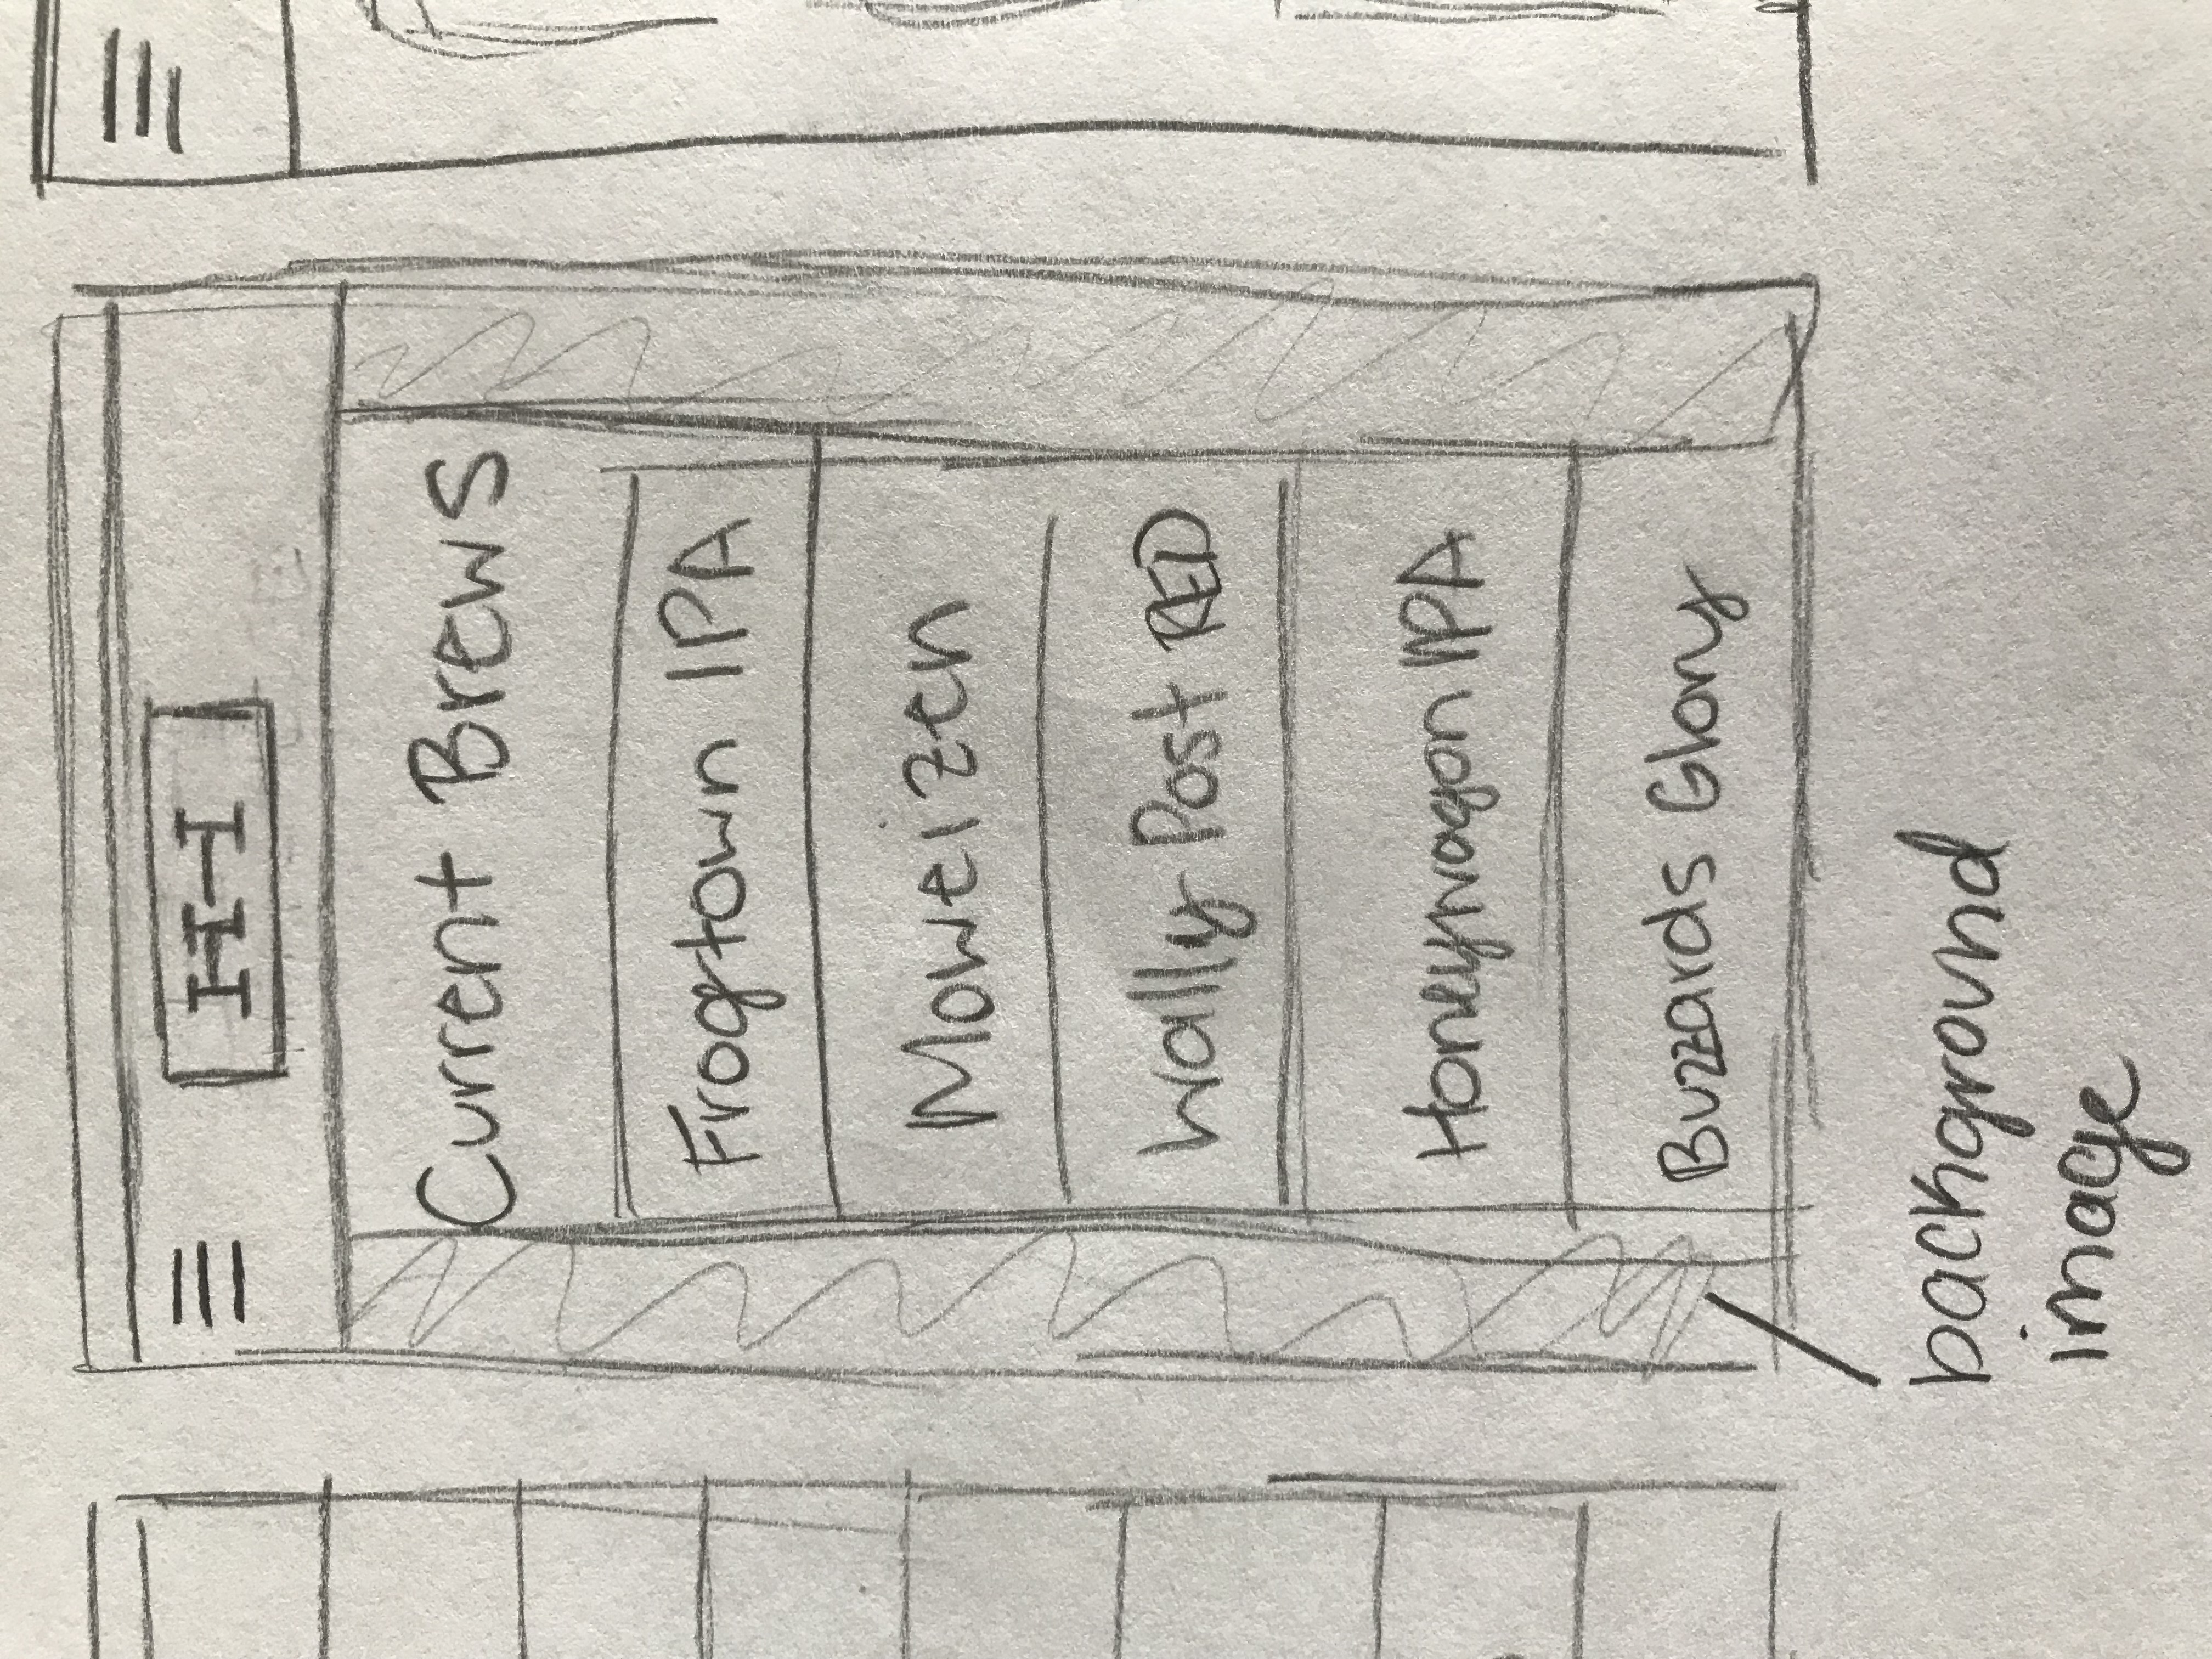 Current Brews
Frogtown IPA
Moweizen
Wally Post RED
Honeywagon IPA
Buzzards Glory
background
image